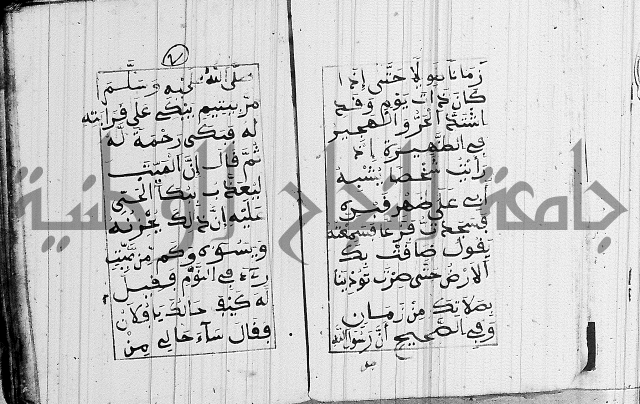 زمانا طويلا حتى إذا
كان ذات يوم وقد
اشتد الحر والهجير
في الظهيرة إذ
رأيت شخصا يشبه
أبي على ظهر قبره
فسجدت فزعا فسمعته
يقول ضاقت بك
الأرض حتى صرت تؤذينا
بصلاتك من زمان
وفي الصحيح أن رسول الله
٧
صلى الله عليه وسلم
يبكي على
له فبكى رحمة له
ثم قال إن الميت
ليعذب ببكاء الحي
عليه إن ذلك يحزنه
ويسوءه وكم من ميت
رءى في النوم وقيل
له كيف حالك يا فلان
فقال ساء حالي من
جامعة النجاح الوطنية